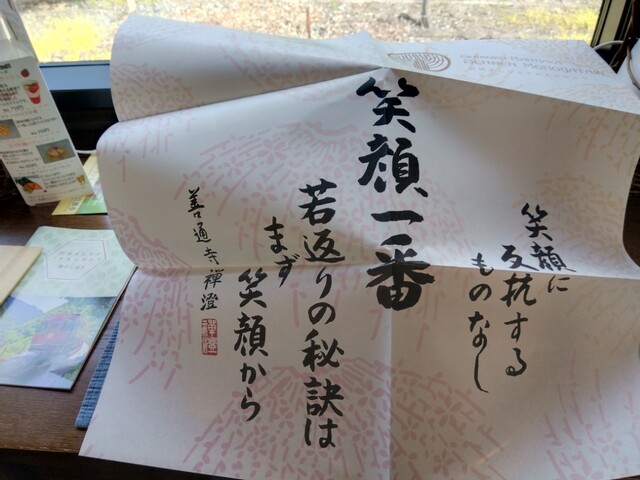 笑顔に
反抗する
ものなし
笑顔一番
若返りの秘訣は
まず
笑顔から
善通寺禅澄